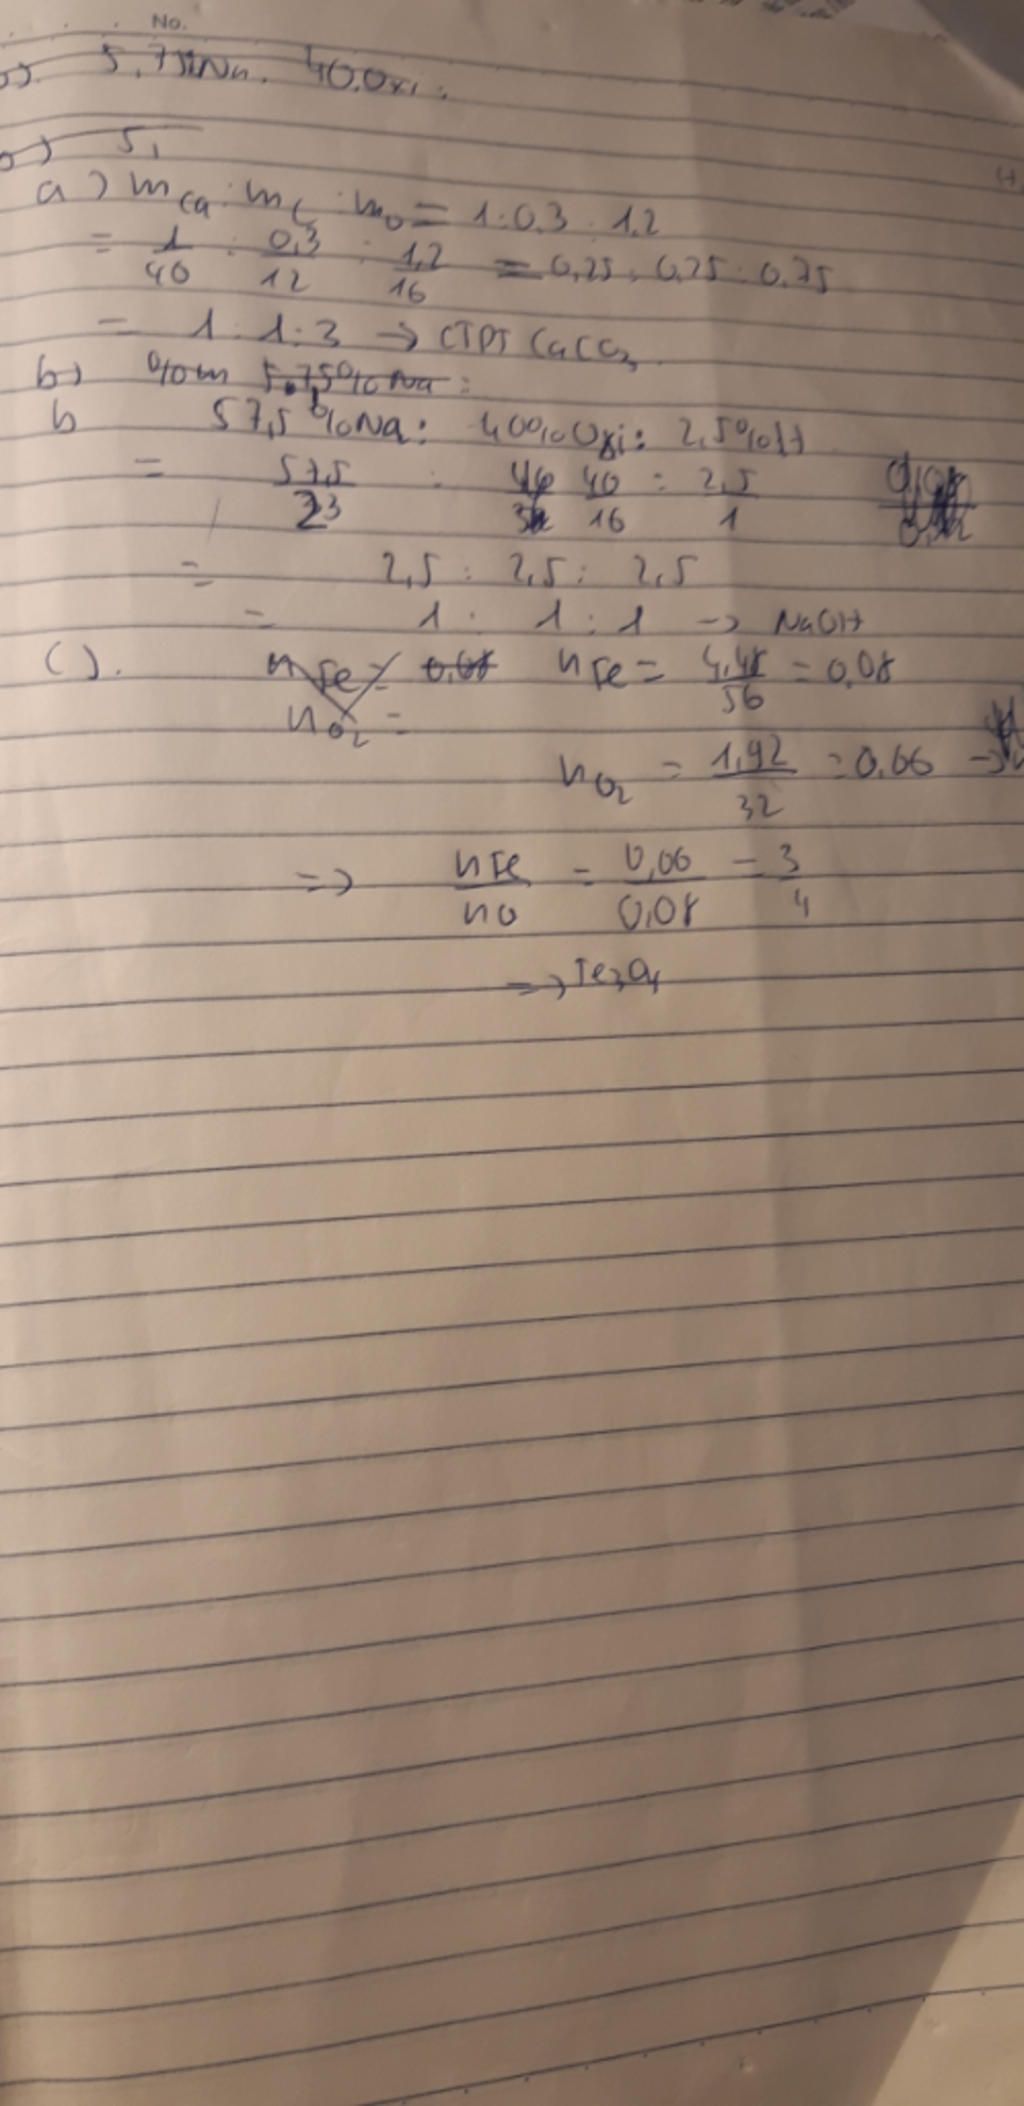 No.
40.Oxi:
5,
a) mCa : mC : mO = 1:0.3 : 1,2
= 1/40 : 0,3/12 : 1,2/16 = 0,25 : 0,25 : 0.75
= 1 : 1 : 3 → CTPT CaCO3
b) %m 5.75% Na :
b 57,5 %Na : 40% Oxi : 2,5%H
= 57,5/23 : 40/16 : 2,5/1
= 2,5 : 2,5 : 2,5
= 1 : 1 : 1 → NaOH
c). nFe = 0,08 nFe = 4,48/56 = 0,08
nO2 =
nO2 = 1,92/32 = 0,06 →
=> nFe/nO = 0,06/0,08 = 3/4
=> Fe3O4